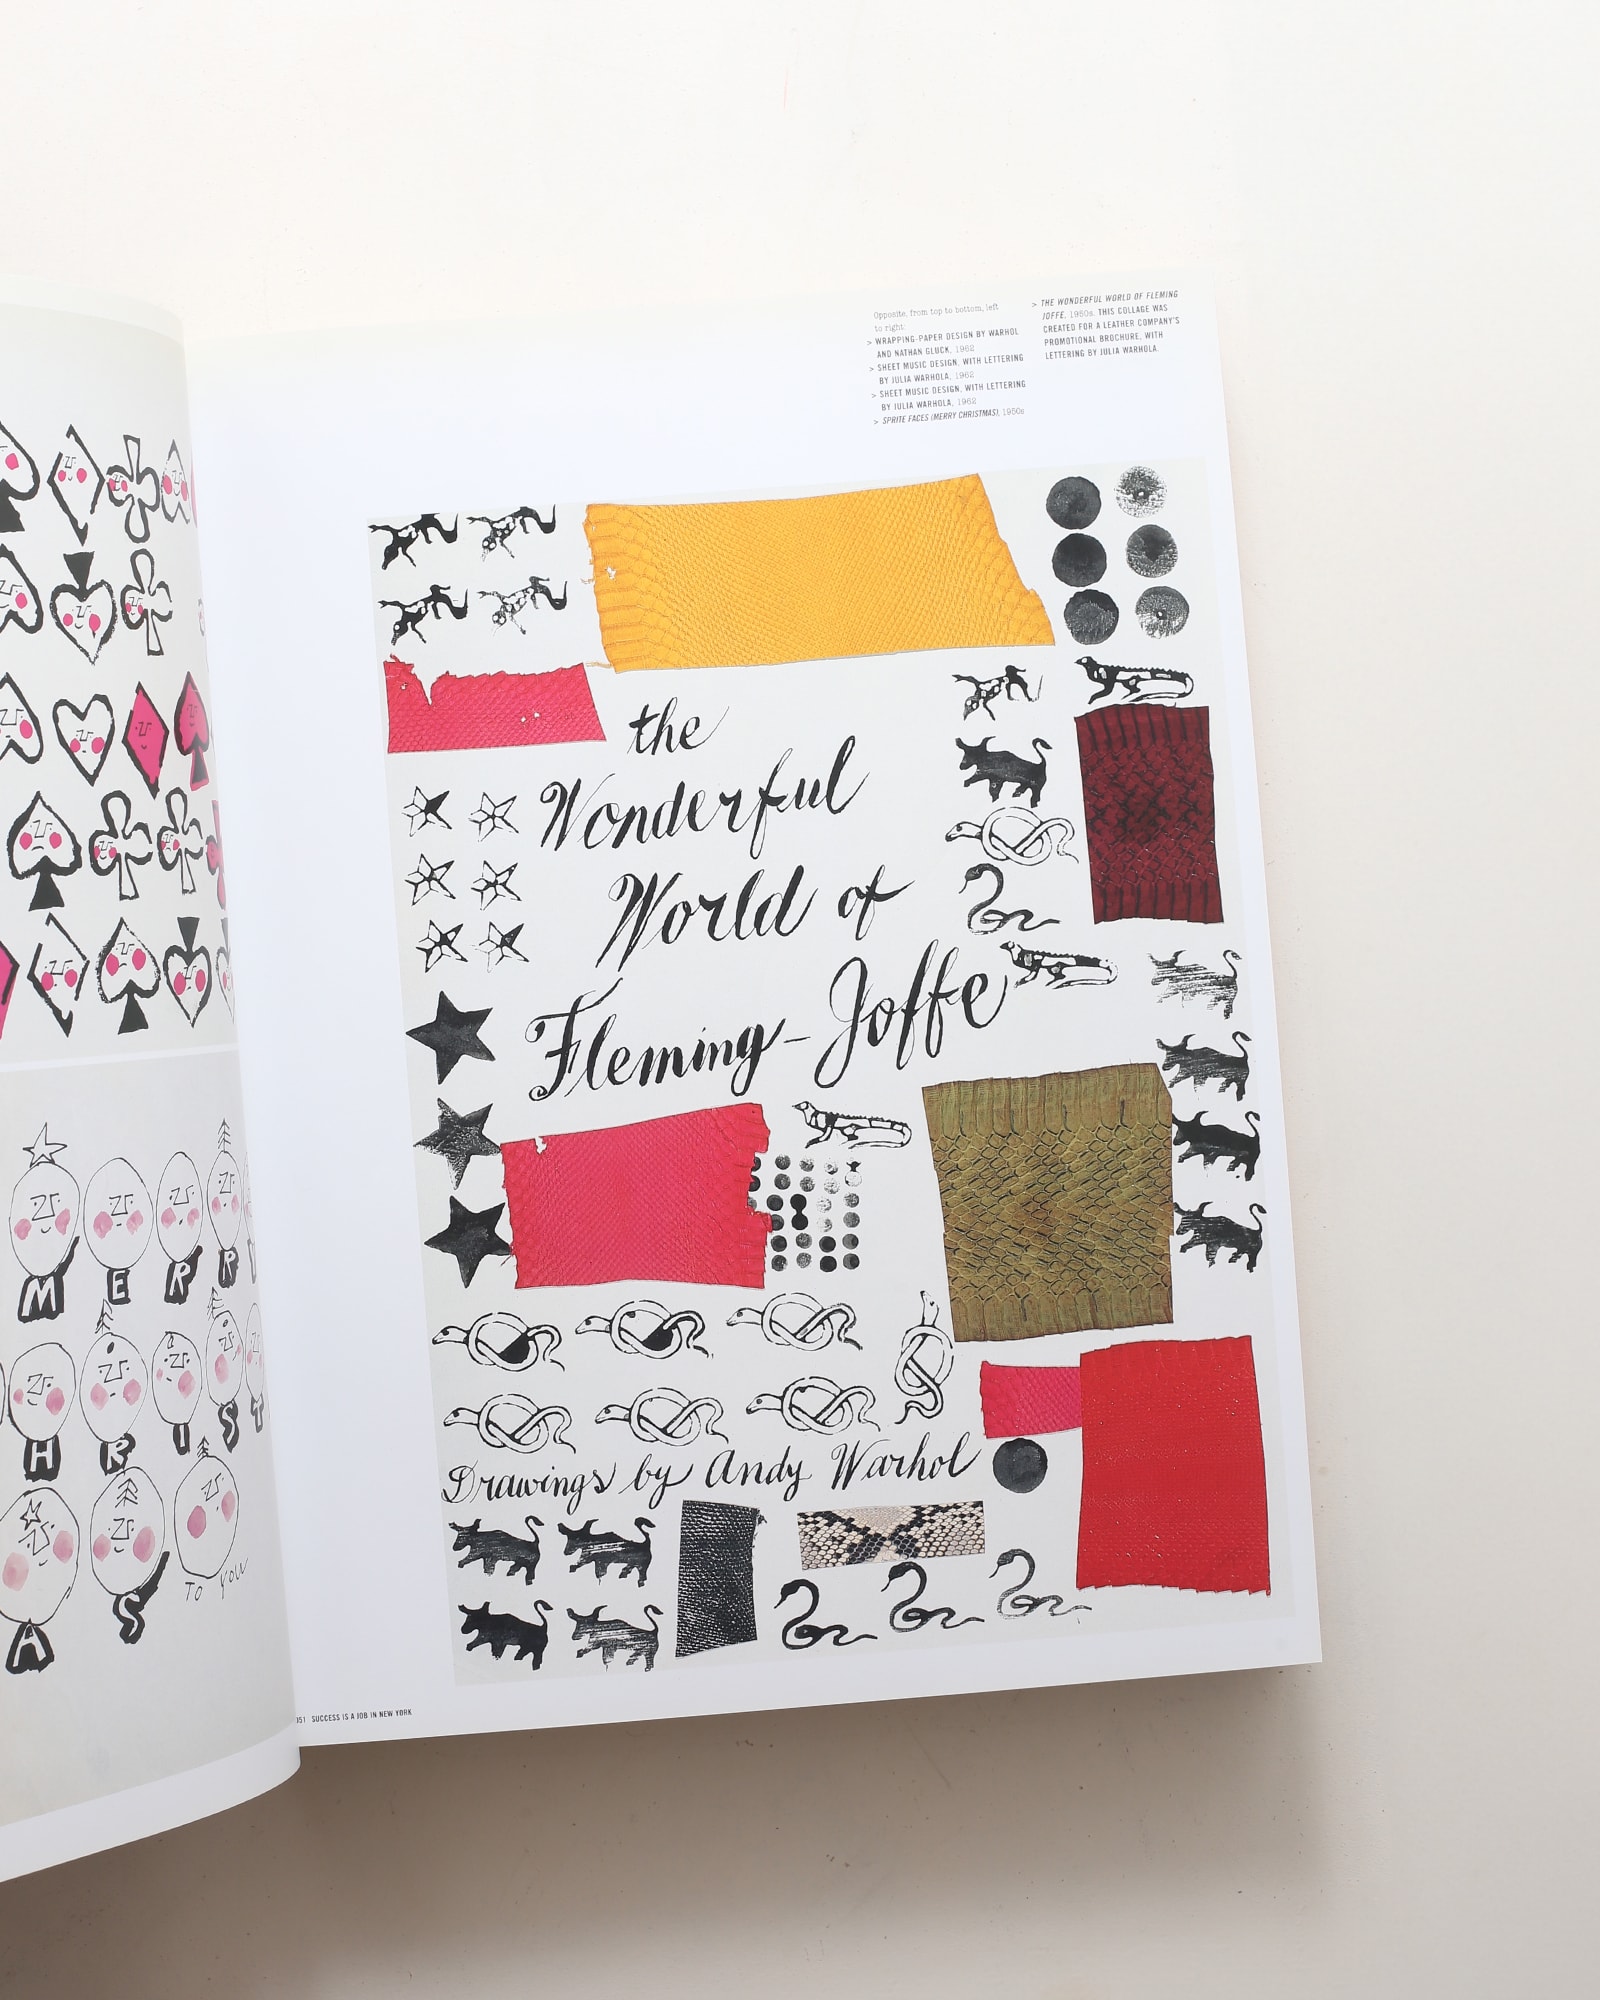 M E R R
H R I S T
A S TO YOU
Opposite, from top to bottom, left
to right:
> WRAPPING-PAPER DESIGN BY WARHOL
AND NATHAN GLUCK, 1962
> SHEET MUSIC DESIGN, WITH LETTERING
BY JULIA WARHOLA, 1962
> SHEET MUSIC DESIGN, WITH LETTERING
BY JULIA WARHOLA, 1962
> SPRITE FACES (MERRY CHRISTMAS), 1950s
> THE WONDERFUL WORLD OF FLEMING
JOFFE, 1950s. THIS COLLAGE WAS
CREATED FOR A LEATHER COMPANY'S
PROMOTIONAL BROCHURE, WITH
LETTERING BY JULIA WARHOLA.
the
Wonderful
World of
Fleming-Joffe
Drawings by Andy Warhol
051 SUCCESS IS A JOB IN NEW YORK